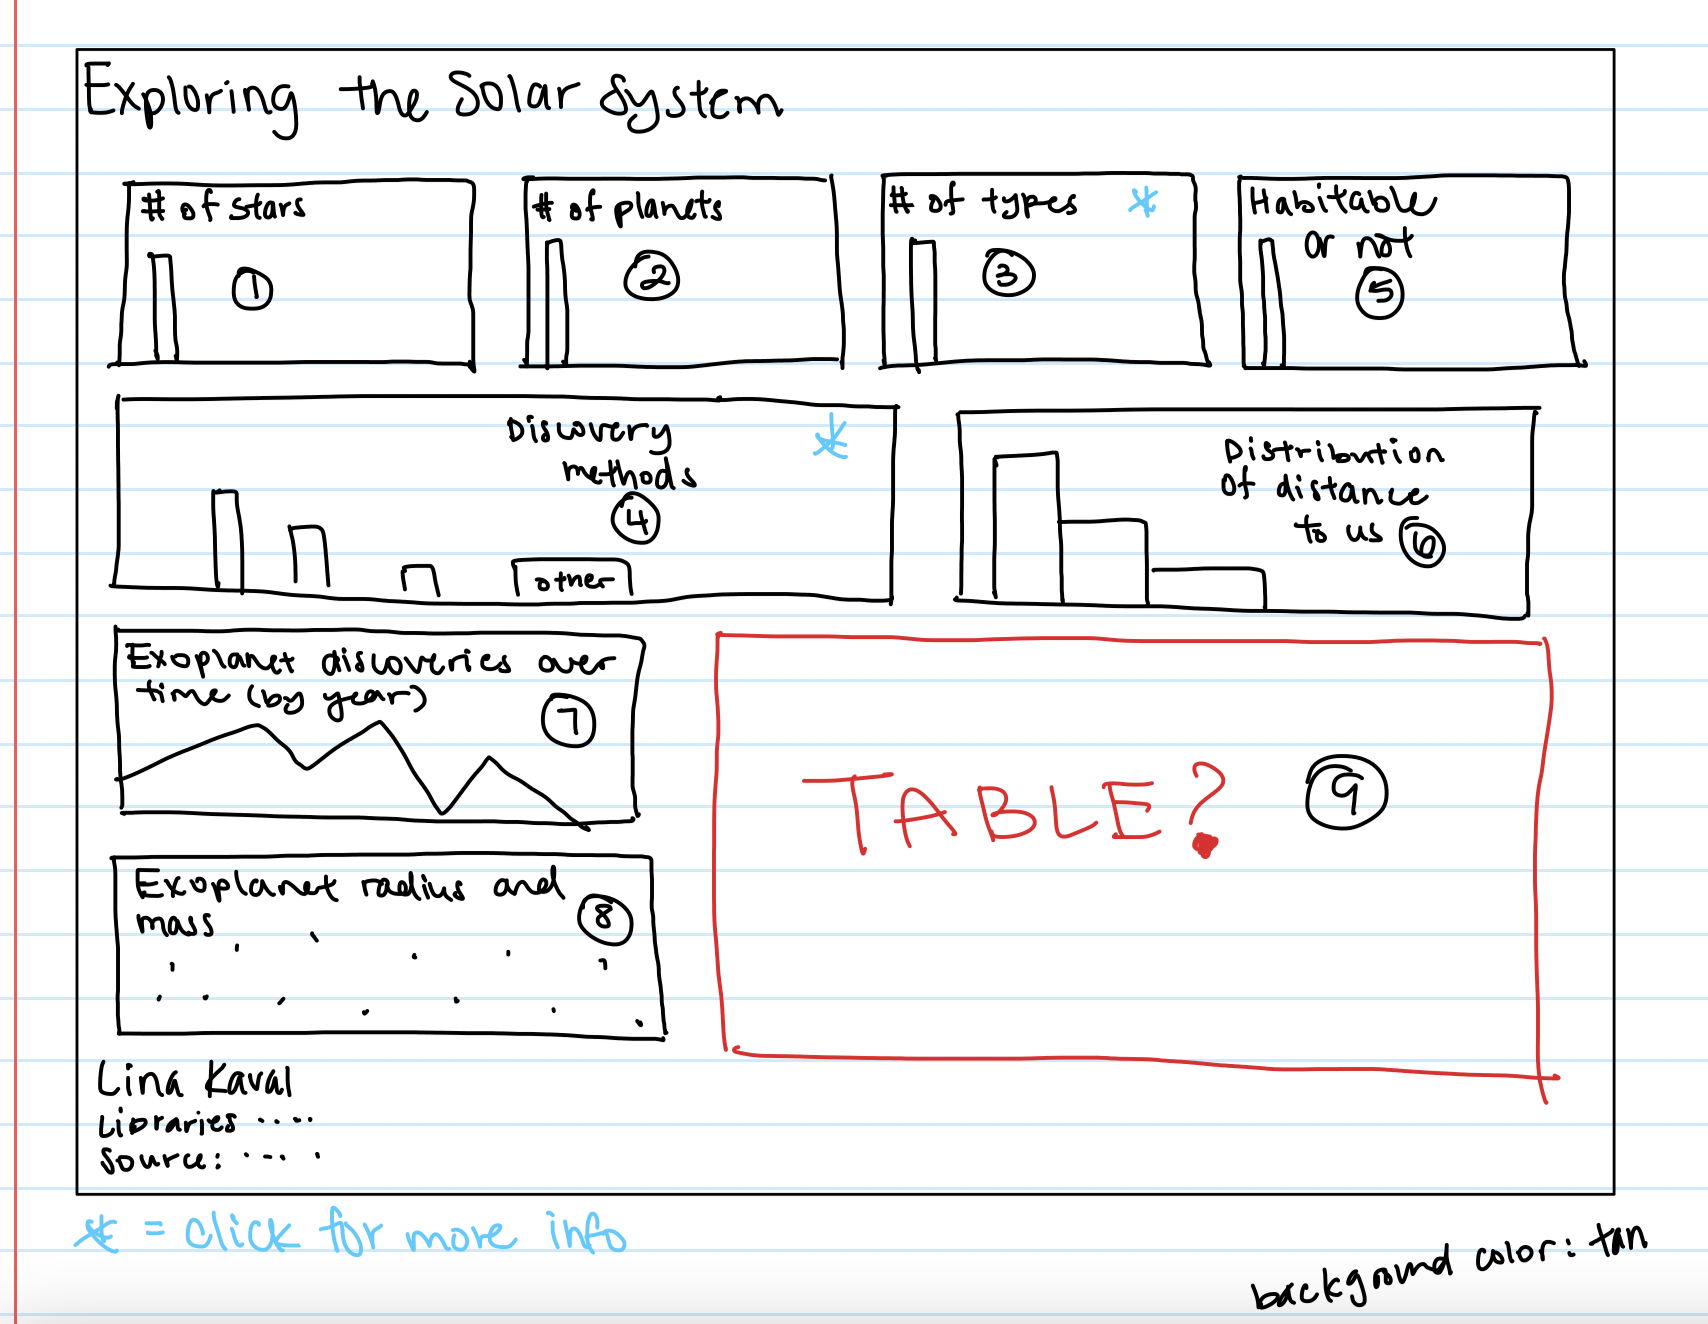 Exploring the Solar System
# of stars
1
# of planets
2
# of types *
3
Habitable
or not
5
Discovery *
methods
4
other
Distribution
of distance
to us 6
Exoplanet discoveries over
time (by year)
7
Exoplanet radius and
mass
8
TABLE?
9
Lina Kaval
Libraries .....
Source: .....
* = click for more info
background color: tan